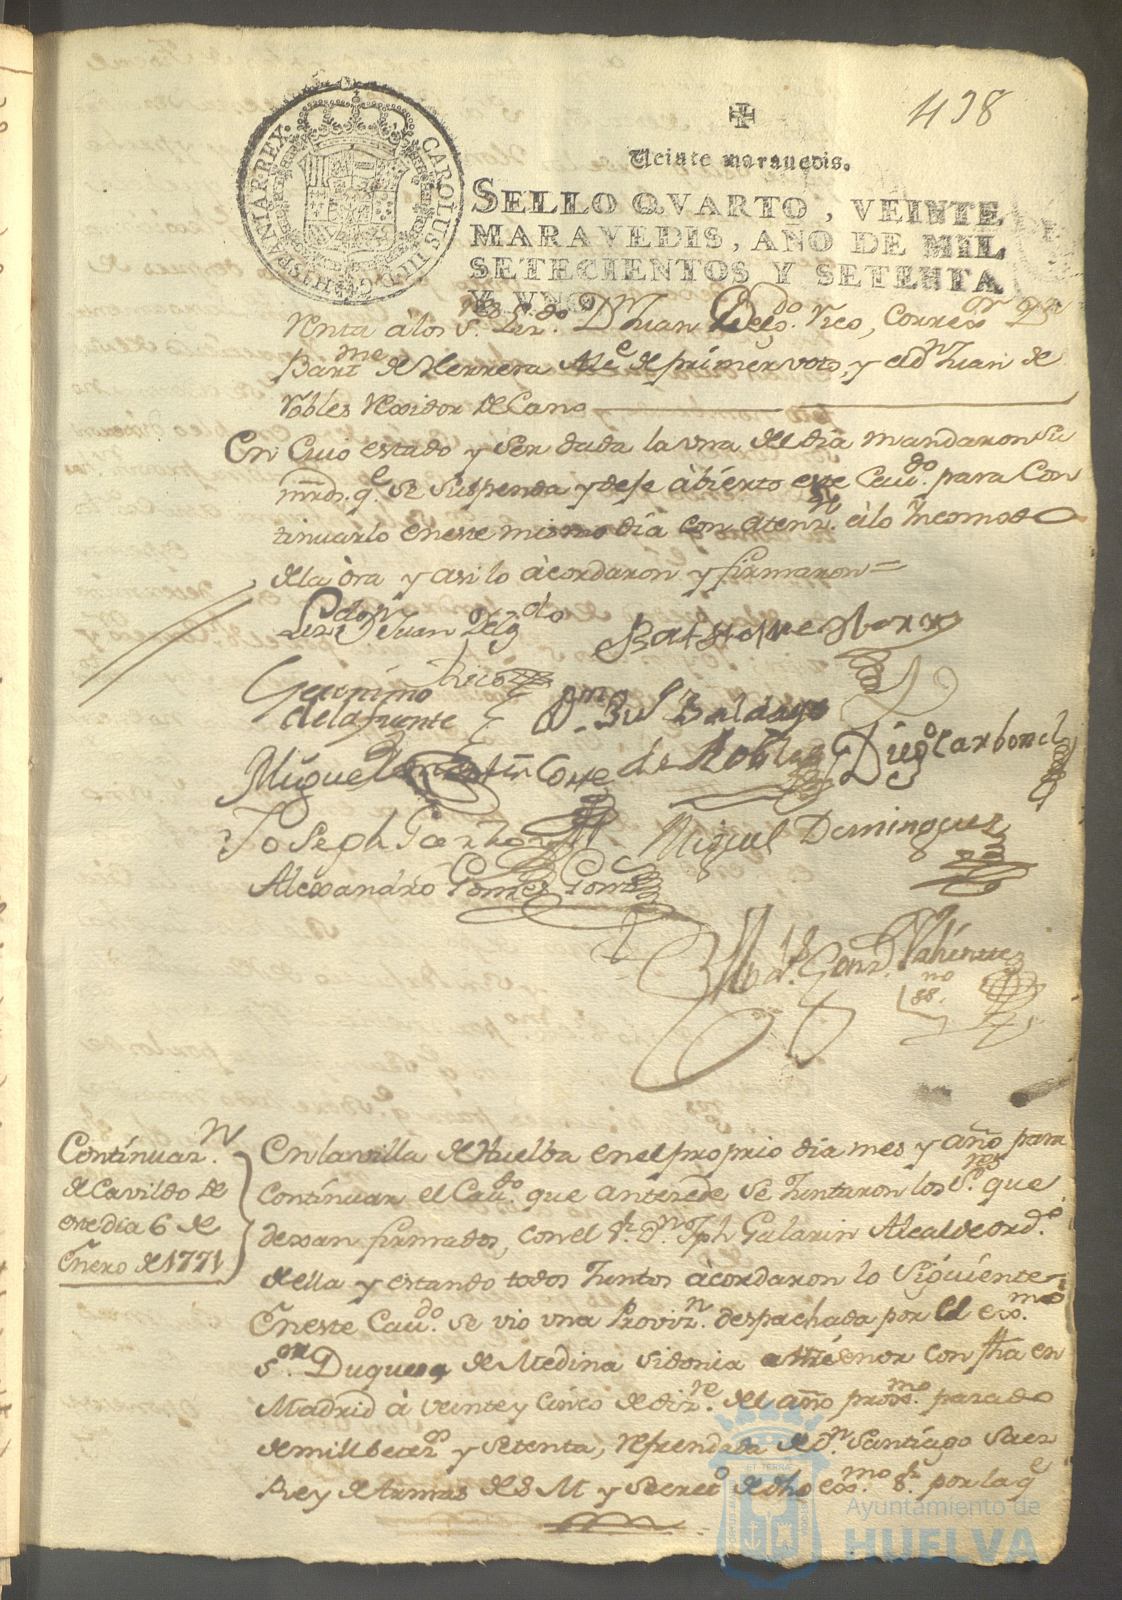 438
Veinte marauedis.
SELLO QVARTO, VEINTE
MARAVEDIS, AÑO DE MIL
SETECIENTOS Y SETENTA
Y VNO.
CAROLUS III D G HISPANIAR REX
renta à los Sres. Lizdo. Dn Juan Delgdo. Rico, Correxor Dn
Bartme de Herrera Alce de primer voto, y el dn Juan de
Robles Rexidor Decano
En Cuio estado y Ser dada la vna del dia mandaron Su
mrds. qe. se suspenda y deje àbierto este Caudo. para Con
tinuarlo en este mismo dia con atenzn. àlo Yncomodo
dela òra y asi lo àcordaron y firmaron=
Lizdo Dn Juan Delgdo
Rico
Geronimo
dela fuente
Baldayo
Miguel
de Robles
Diego Carbonel
Joseph Garzon
Miguel Dominguez
Alexandro Gomez
Contínuazn.
de Cavildo de
este dia 6 de
Enero de 1771
En la villa de Huelba en el proprio dia mes y año para
Contínuar el Caudo. que antezede se Juntaron los Sres. que
dexan firmados, con el Sr. Dn Jph Galarin Alcalde ordo
de ella y estando todos Juntos àcordaron lo Siguiente
En este Caudo. se vio vna Provizn. despachada por el exmo.
Sor. Duque de Medina Sidonia mi señor con fha en
Madrid à Veinte y Cinco de dizre. del año proxmo. pasado
de mill setezos y setenta, refrendada de Dn Santiago Saez
Rey de Armas de S M y Secreto de dho exmo. Sr. por la qe
Ayuntamiento de
HUELVA